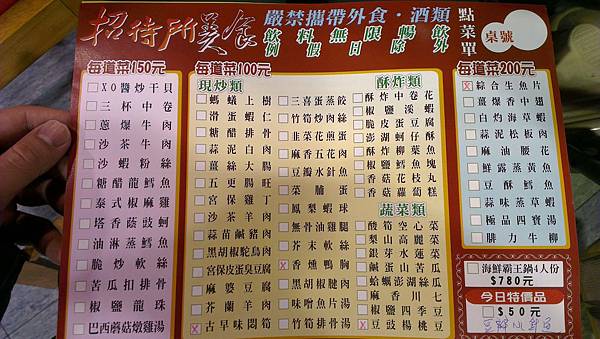 招待所美食
嚴禁攜帶外食·酒類
飲料無限暢飲
例假日除外
點菜單
桌號
每道菜150元
XO醬炒干貝
三杯中卷
蔥爆牛肉
沙茶牛肉
沙蝦粉絲
糖醋龍鱈魚
泰式椒麻雞
塔香蔭豉蚵
油淋蒸鱈魚
脆炒軟絲
苦瓜扣排骨
椒鹽龍珠
巴西蘑菇燉雞湯
每道菜100元
現炒類
螞蟻上樹
滑蛋蝦仁
糖醋排骨
蒜泥白肉
薑絲大腸
五更腸旺
宮保雞丁
沙茶羊肉
蒜苗鹹豬肉
黑胡椒鴕鳥肉
宮保皮蛋臭豆腐
麻婆豆腐
芥蘭羊肉
古早味悶筍
三喜蛋蒸餃
竹筍炒肉絲
韭菜花煎蛋
麻香五花肉
豆瓣水針魚
菜脯蛋
鳳梨蝦球
無骨油雞腿
芥末軟絲
香燻鴨胸
黑胡椒腱肉
味噌魚片湯
竹筍排骨湯
酥炸類
酥炸中卷花
椒鹽溪蝦
脆皮蛋豆腐
澎湖蚵仔酥
酥炸柳葉魚
椒鹽鱈魚塊
香菇花枝丸
香菇蘿蔔糕
蔬菜類
酸筍空心菜
梨山高麗菜
銀芽水蓮菜
鹹蛋山苦瓜
蛤蠣澎湖絲瓜
麻香川七
椒鹽四季豆
豆豉楊桃豆
每道菜200元
綜合生魚片
薑爆香中翅
白灼海草蝦
蒜泥松板肉
麻油腰花
鮮露蒸黃魚
豆酥鱈魚
蒜味蒸草蝦
極品四寶湯
腓力牛柳
海鮮霸王鍋4人份
$780元
今日特價品
$50元